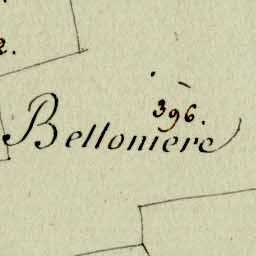 2.
396.
Belloniere